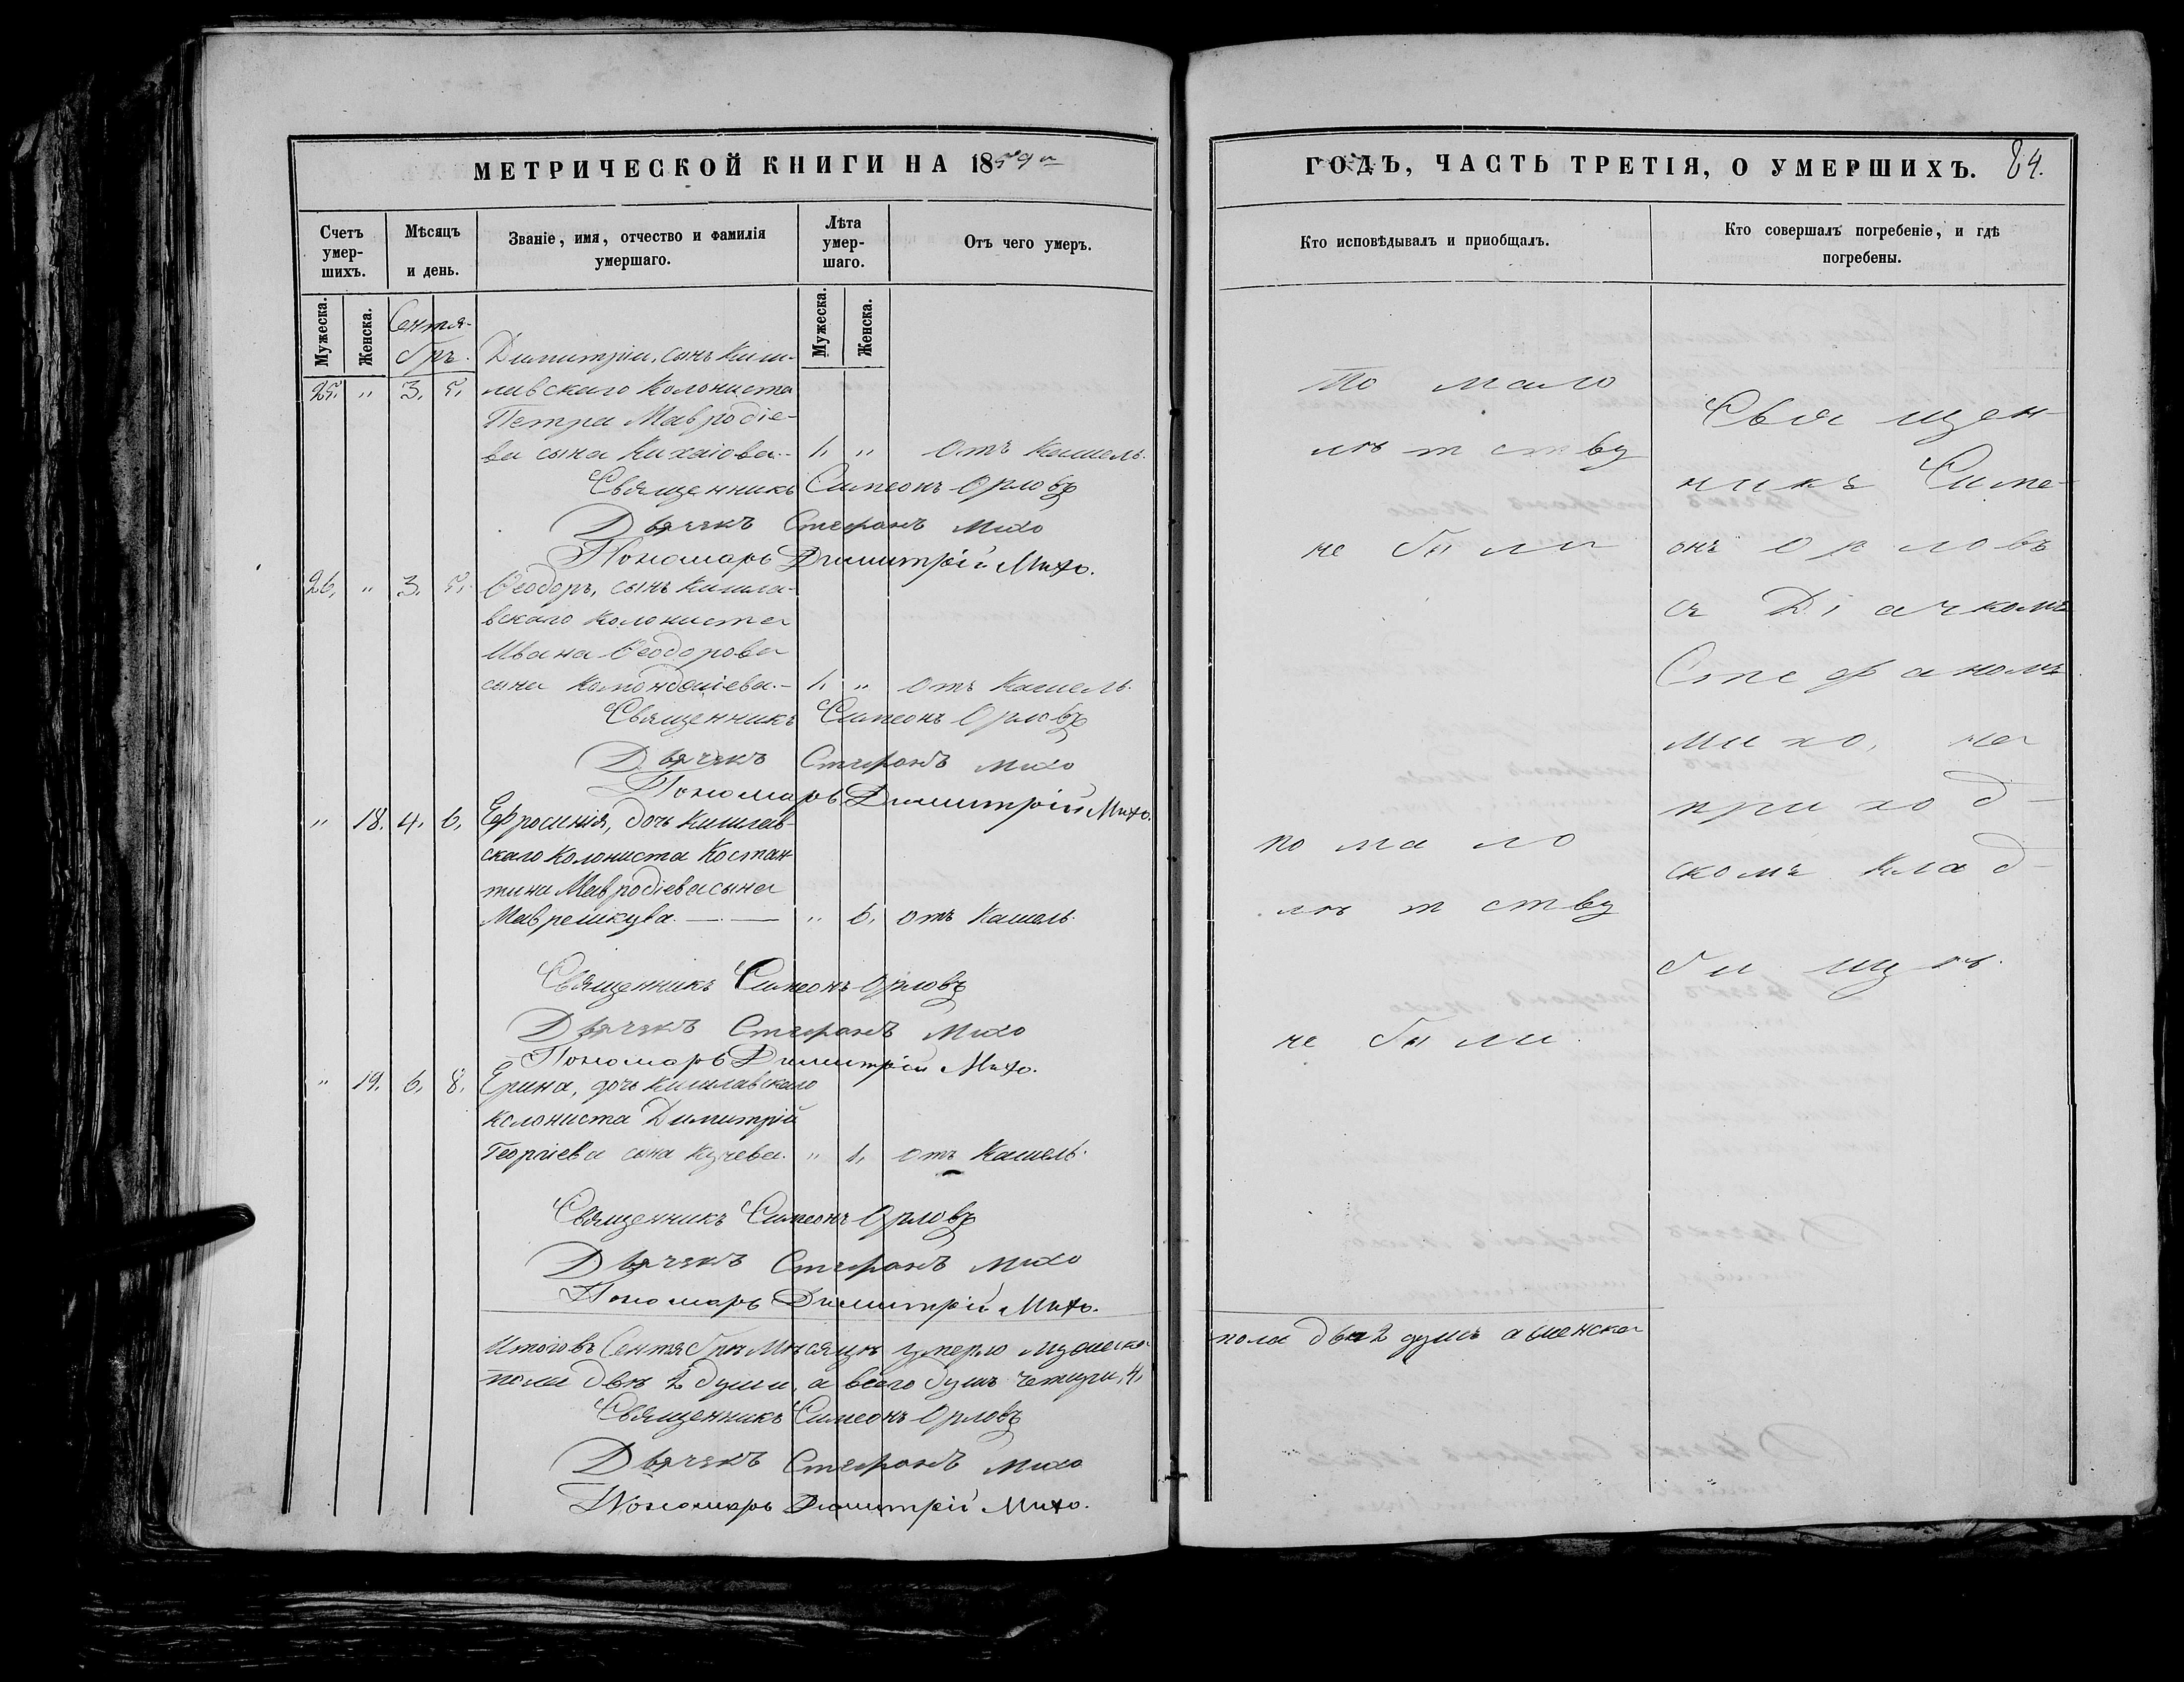 МЕТРИЧЕСКОЙ КНИГИ НА 1859 й
Счетъ умер-шихъ.
Мѣсяцъ и день.
Званіе, имя, отчество и фамилія умершаго.
Лѣта умер-шаго.
Отъ чего умеръ.
Мужеска.
Женска.
Сентя-
брь.
Мужеска.
Женска.
Димитрій, сынъ Киш-
25. " 3. 5. лавскаго колониста
Петра Мавродіе-
ва сына Кихаіова.- 1, " отъ Кашель.
Священникъ Симеонъ Орловъ
Дьячекъ Стефанъ Михо
Пономарь Димитрій Михо.
26, " 3, 5, Ѳеодоръ, сынъ Кишла-
вскаго колониста
Ивана Ѳеодорова
сына .- 1, " отъ Кашель.
Священникъ Симеонъ Орловъ
Дьячекъ Стефанъ Михо
Пономарь Димитрій Михо.
" 18. 4, 6, Ефросинія, дочь Кишлав-
скаго колониста Костан-
тина Мавродіева сына
" 6, отъ Кашель.
Священникъ Симеонъ Орловъ
Дьячекъ Стефанъ Михо
Пономарь Димитрій Михо.
" 19. 6, 8, Ерина, дочь Кишлавскаго
колониста Димитрій
Георгіева сына Кучева. " 1, отъ Кашель.
Священникъ Симеонъ Орловъ
Дьячекъ Стефанъ Михо
Пономарь Димитрій Михо.
Итого въ Сентябрѣ Мѣсяцѣ умерло мужеска
пола двѣ 2 души, а всего душъ четыри, 4,
Священникъ Симеонъ Орловъ
Дьячекъ Стефанъ Михо
Пономарь Димитрій Михо.
ГОДЪ, ЧАСТЬ ТРЕТІЯ, О УМЕРШИХЪ. 84.
Кто исповѣдывалъ и приобщалъ.
Кто совершалъ погребеніе, и гдѣ
погребены.
По мало
лѣтству
не были
по мало
лѣтству
не были.
Священ-
никъ Симе-
онъ Орловъ
съ Діачкомъ
Стефаномъ
Михо, на
приход-
скомъ клад-
бищѣ.
пола двѣ 2 душъ а женска